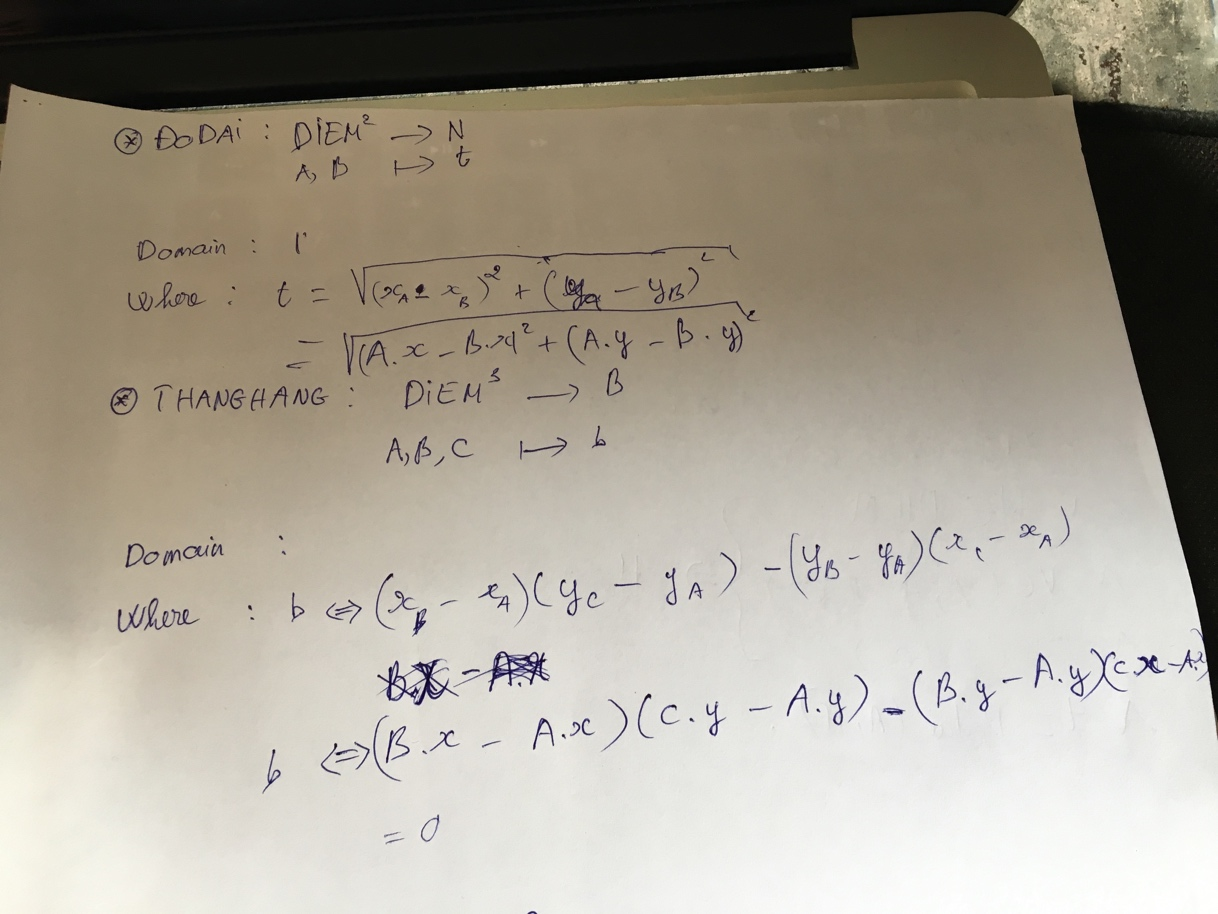 ⊛ ĐODAi : DiEM² → N
A, B ↦ t
Domain :
Where : t = √(x_A - x_B)² + (y_A - y_B)²
= √(A.x - B.x)² + (A.y - B.y)²
⊛ THANGHANG : DiEM³ → B
A, B, C ↦ b
Domain :
Where : b ⇔ (x_B - x_A)(y_C - y_A) - (y_B - y_A)(x_C - x_A)
b ⇔ (B.x - A.x)(C.y - A.y) - (B.y - A.y)(C.x - A.x)
= 0